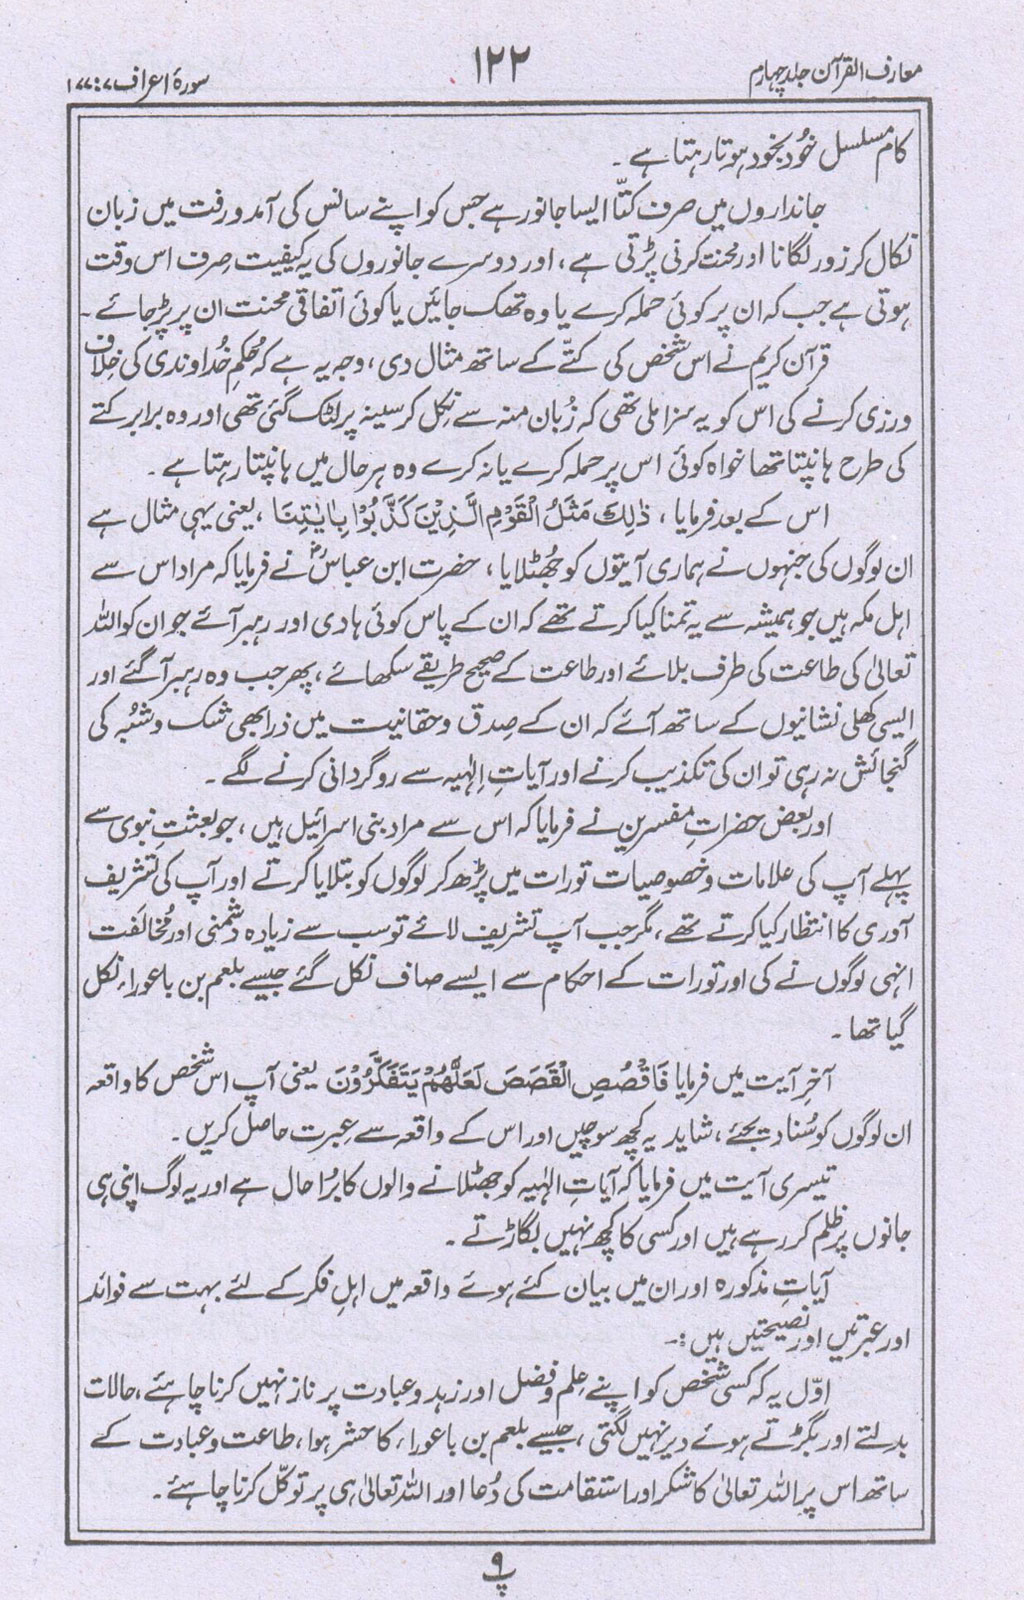 معارف القرآن جلد چہارم
۱۲۲
سورۂ اعراف ۷ : ۱۷۷
کام مسلسل خُود بخود ہوتا رہتا ہے ۔
جانداروں میں صرف کتّا ایسا جانور ہے جس کو اپنے سانس کی آمد و رفت میں زبان
نکال کر زور لگانا اور محنت کرنی پڑتی ہے ، اور دوسرے جانوروں کی یہ کیفیت صِرف اس وقت
ہوتی ہے جب کہ ان پر کوئی حملہ کرے یا وہ تھک جائیں یا کوئی اتفاقی محنت ان پر پڑ جائے ۔
قرآن کریم نے اس شخص کی کتّے کے ساتھ مثال دی ، وجہ یہ ہے کہ حُکمِ خُداوندی کی خِلاف
ورزی کرنے کی اس کو یہ سزا ملی تھی کہ زُبان منہ سے نِکل کر سینہ پر لٹک گئی تھی اور وہ برابر کتے
کی طرح ہانپتا تھا خواہ کوئی اس پر حملہ کرے یا نہ کرے وہ ہر حال میں ہانپتا رہتا ہے ۔
اس کے بعد فرمایا ، ذٰلِكَ مَثَلُ الْقَوْمِ الَّذِيْنَ كَذَّبُوْا بِاٰيٰتِنَا ، یعنی یہی مثال ہے
ان لوگوں کی جنہوں نے ہماری آیتوں کو جُھٹلایا ، حضرت ابن عباسؓ نے فرمایا کہ مراد اس سے
اہل مکہ ہیں جو ہمیشہ سے یہ تمنا کیا کرتے تھے کہ ان کے پاس کوئی ہادی اور رہبر آئے جو ان کو اللہ
تعالیٰ کی طاعت کی طرف بلائے اور طاعت کے صحیح طریقے سکھائے ، پھر جب وہ رہبر آگئے اور
ایسی کھلی نشانیوں کے ساتھ آئے کہ ان کے صِدق و حقانیت میں ذرا بھی شک و شبُہ کی
گنجائش نہ رہی تو ان کی تکذیب کرنے اور آیاتِ اِلٰہیہ سے روگردانی کرنے لگے ۔
اور بعض حضراتِ مفسرین نے فرمایا کہ اس سے مراد بنی اسرائیل ہیں ، جو بعثتِ نبوی سے
پہلے آپ کی علامات و خصوصیات تورات میں پڑھ کر لوگوں کو بتلایا کرتے اور آپ کی تشریف
آوری کا انتظار کیا کرتے تھے ، مگر جب آپ تشریف لائے تو سب سے زیادہ دشمنی اور مُخالَفت
انہی لوگوں نے کی اور تورات کے احکام سے ایسے صاف نکل گئے جیسے بلعم بن باعوراء نکل
گیا تھا ۔
آخرِ آیت میں فرمایا فَاقْصُصِ الْقَصَصَ لَعَلَّهُمْ يَتَفَكَّرُوْنَ یعنی آپ اس شخص کا واقعہ
ان لوگوں کو سُنا دیجئے ، شاید یہ کچھ سوچیں اور اس کے واقعہ سے عِبرت حاصل کریں ۔
تیسری آیت میں فرمایا کہ آیاتِ الٰہیہ کو جھٹلانے والوں کا بُرا حال ہے اور یہ لوگ اپنی ہی
جانوں پر ظلم کر رہے ہیں اور کسی کا کچھ نہیں بگاڑتے ۔
آیاتِ مذکورہ اور ان میں بیان کئے ہوئے واقعہ میں اہلِ فکر کے لئے بہت سے فوائد
اور عبرتیں اور نصیحتیں ہیں :۔
اوّل یہ کہ کسی شخص کو اپنے عِلم و فضل اور زہد و عبادت پر ناز نہیں کرنا چاہئے ، حالات
بدلتے اور بگڑتے ہوئے دیر نہیں لگتی ، جیسے بلعم بن باعوراء کا حشر ہوا ، طاعت و عبادت کے
ساتھ اس پر اللہ تعالیٰ کا شکر اور استقامت کی دُعا اور اللہ تعالیٰ ہی پر توکّل کرنا چاہئے ۔